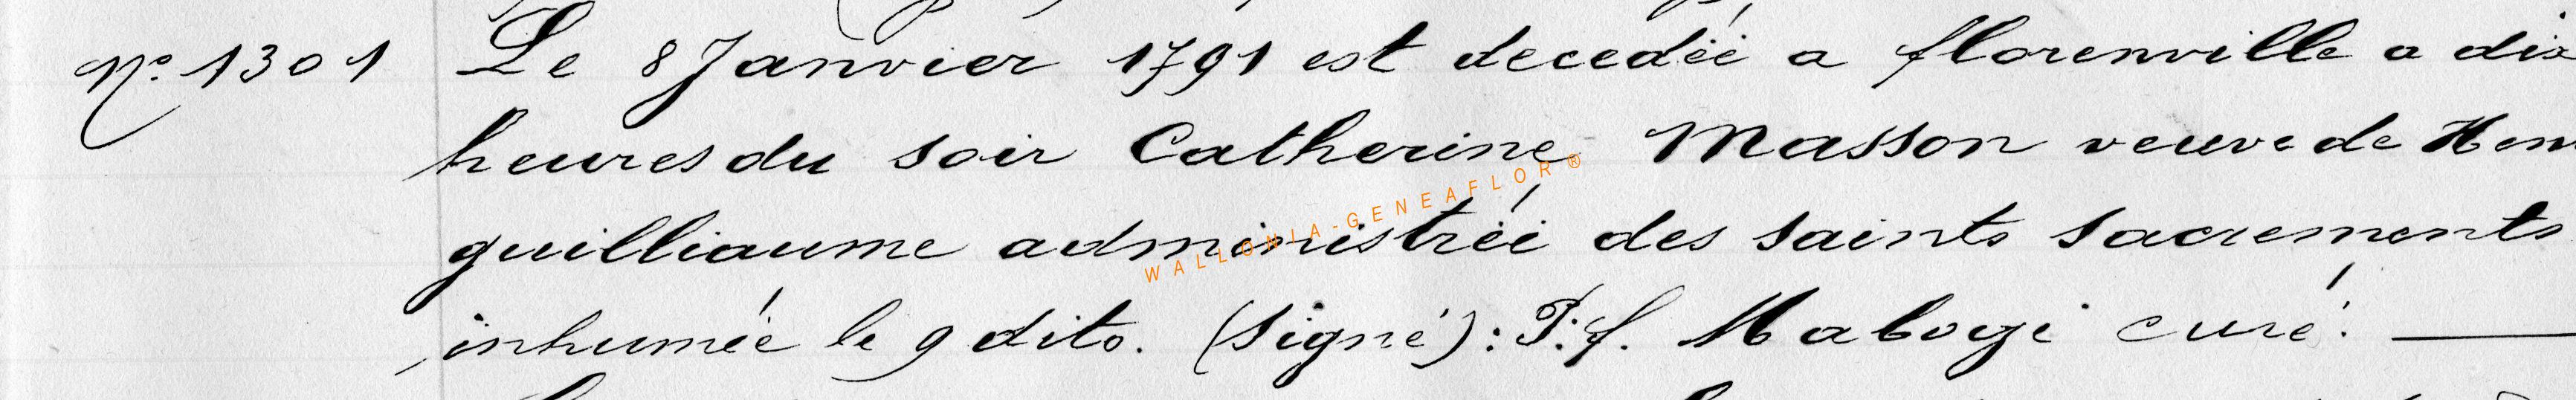 N° 1301 Le 8 Janvier 1791 est decedée a florenville a dix
heures du soir Catherine Masson veuve de Hen
guilliaume administrée des saints sacrements
inhumée le 9 dito. (Signé): P.f. curé.
WALLONIA-GENEAFLOR®